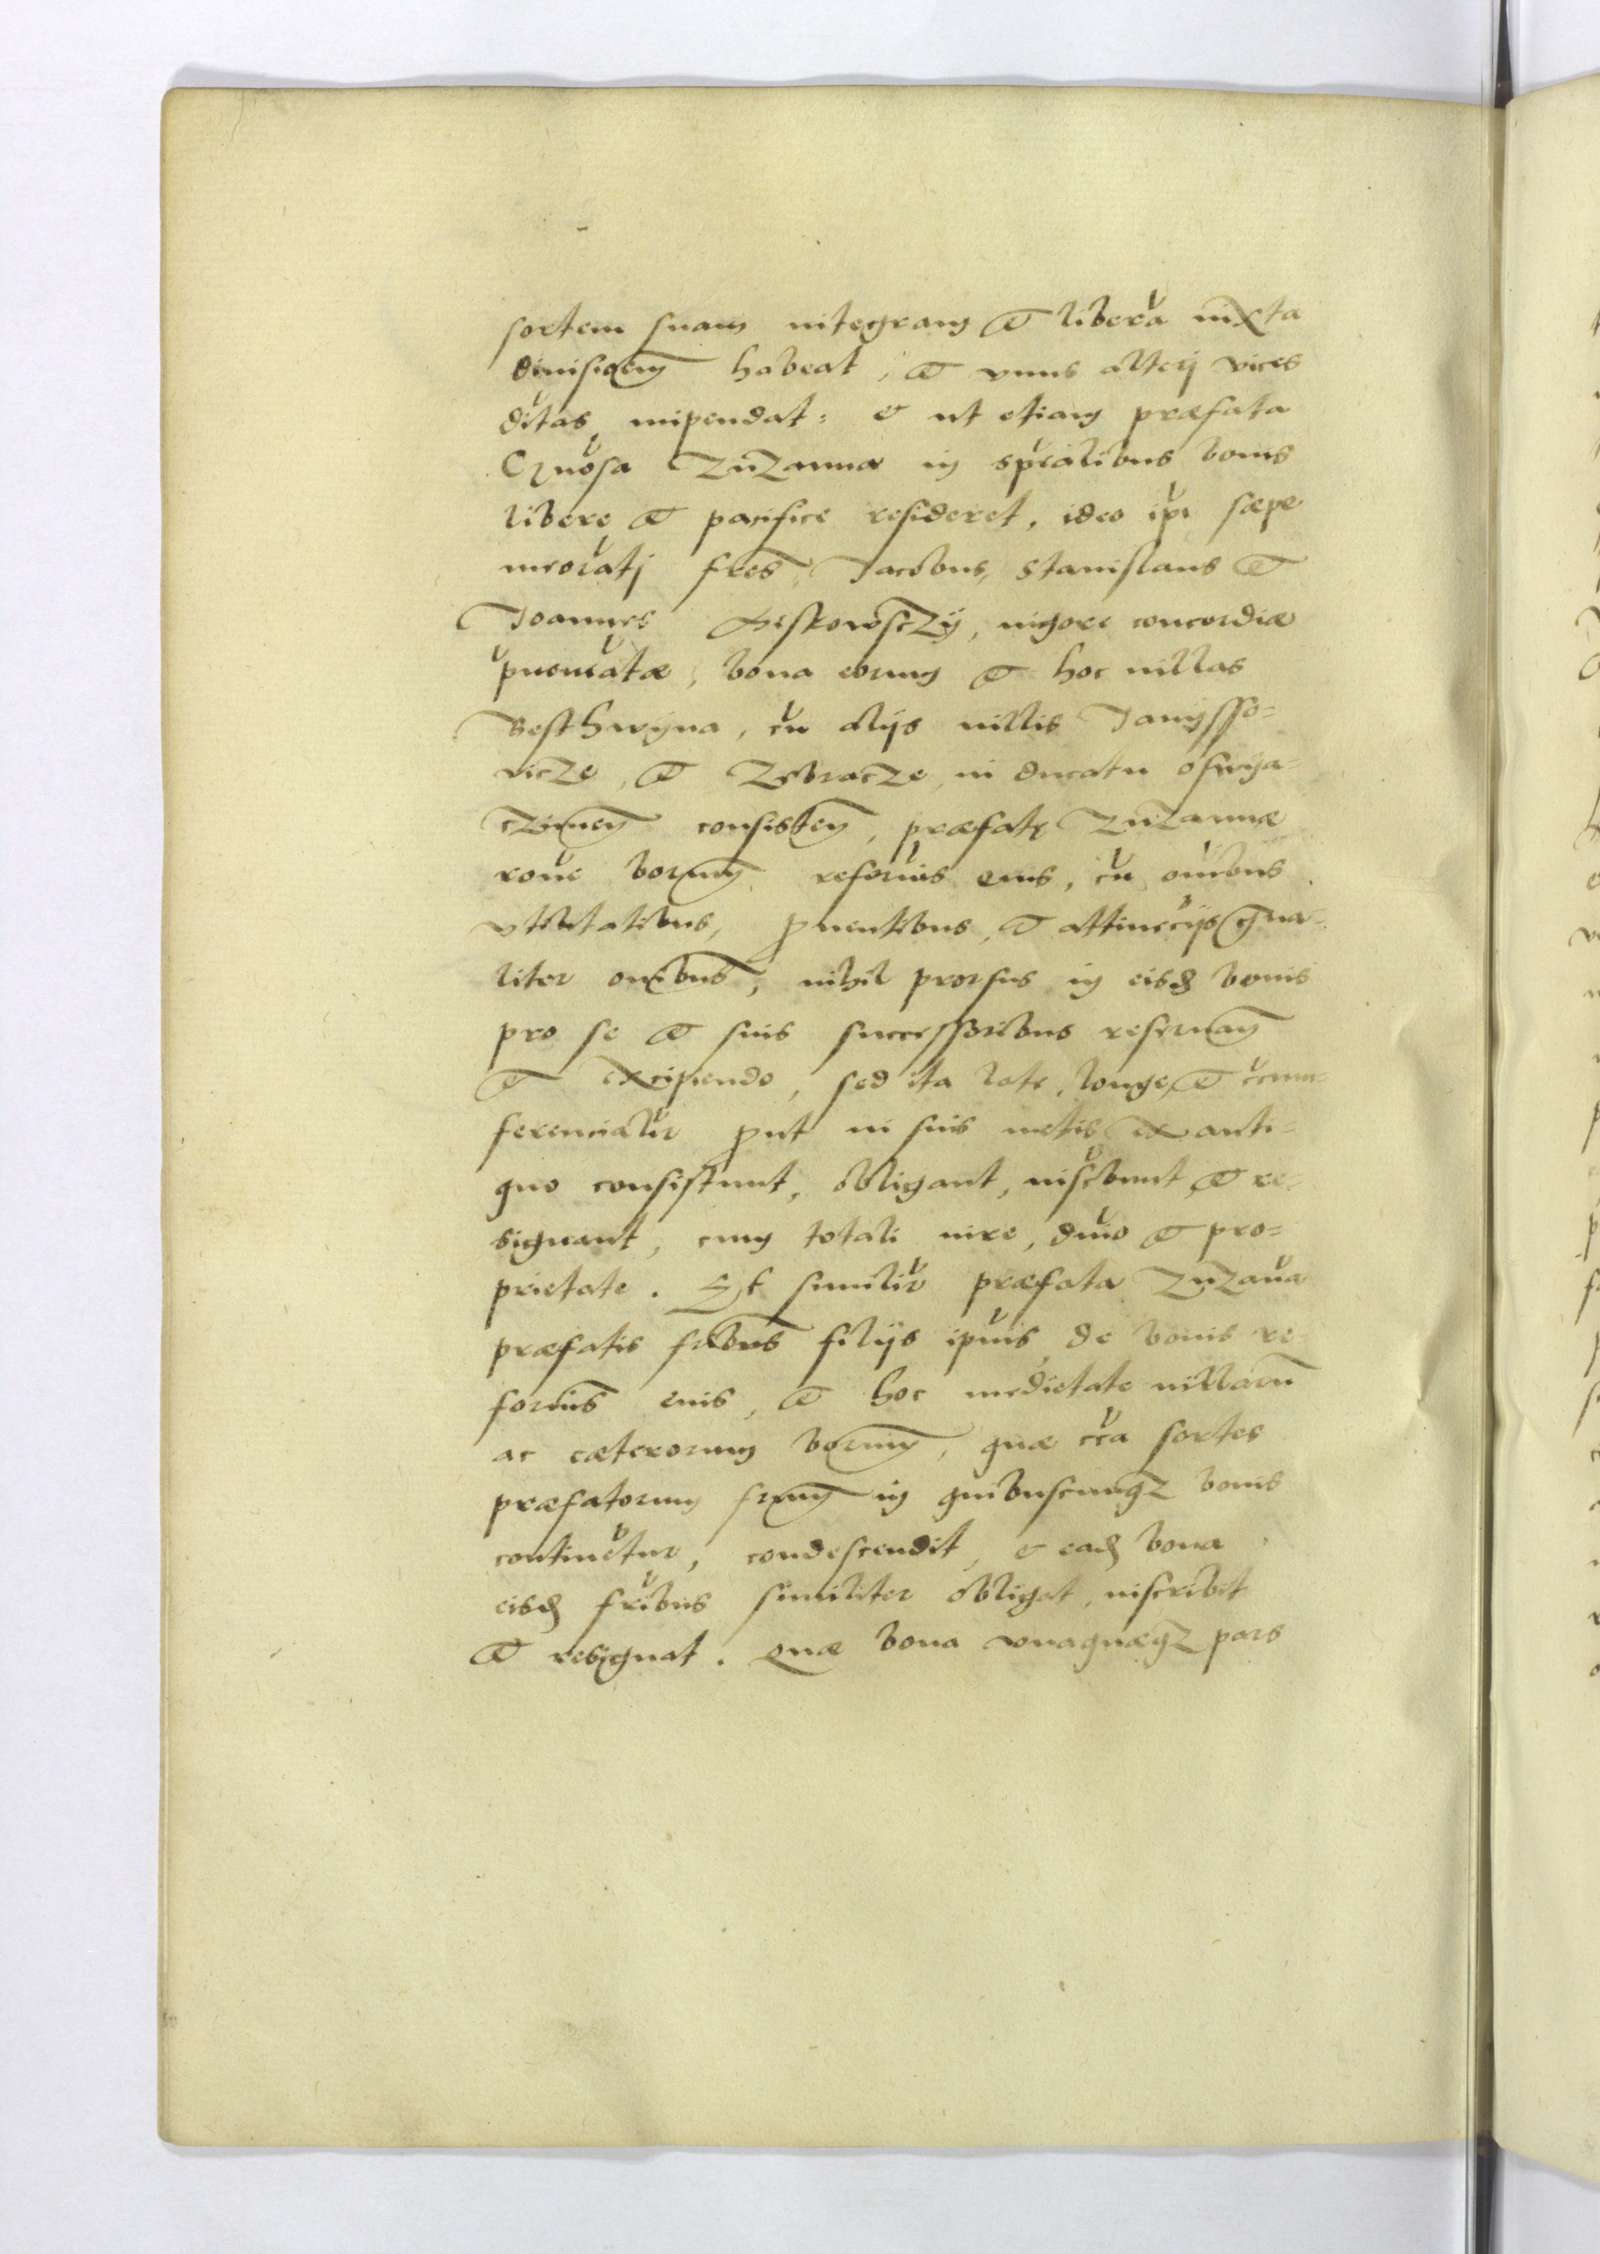 sortem suam integram et libera iuxta
divisioem habeat, et unus alterj vices
ditas impendat: & ut etiam præfata
Gnosa Zuzanna in spualibus bonis
libere et pacifice resideret, ideo ipi sæpe
meorati fres, Jacobus, Stanislaus et
Joannes, vigore concordiæ
pnomatæ, bona eorum et hoc villas
Besthwyna, cu alijs villis Janysso=
vicze, et Zebracze, in ducatu oswya=
czimen consisten, præfate Zuzannæ
roue bonorum reformis eius, cu omibus
utilitatibus, proventibus, et attinecijs gna=
liter omibus, nihil prorsus in eisd bonis
pro se et suis successoribus reservan
et excipiendo, sed ita late, longe, et circum=
ferencialir prout in suis metis ex anti=
quo consistunt, obligant, inscbunt et re=
signant, cum totali iure, dnio et pro=
prietate. Et similir præfata Zuzana
præfatis fribus filijs ipius de bonis re=
formis eius, et hoc medietate villaru
ac cæterorum bonorum, quæ cca sortes
præfatorum frum in quibuscunqz bonis
continetur, condescendit, & ead bona
eisd fribus similiter obligat, inscribit
et resignat. Quæ bona unaquæqz pars